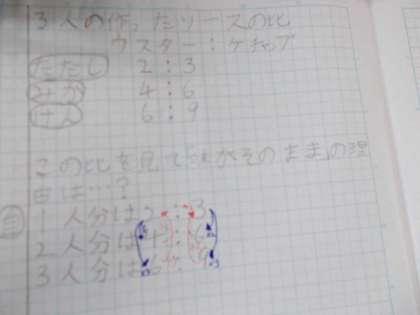 3人の作ったソースの比
ウスター:ケチャップ
ただし 2:3
みか 4:6
けん 6:9
この比を見て味がそのままの理
由は…?
1人分は2:3
2人分は4:6
3人分は6:9